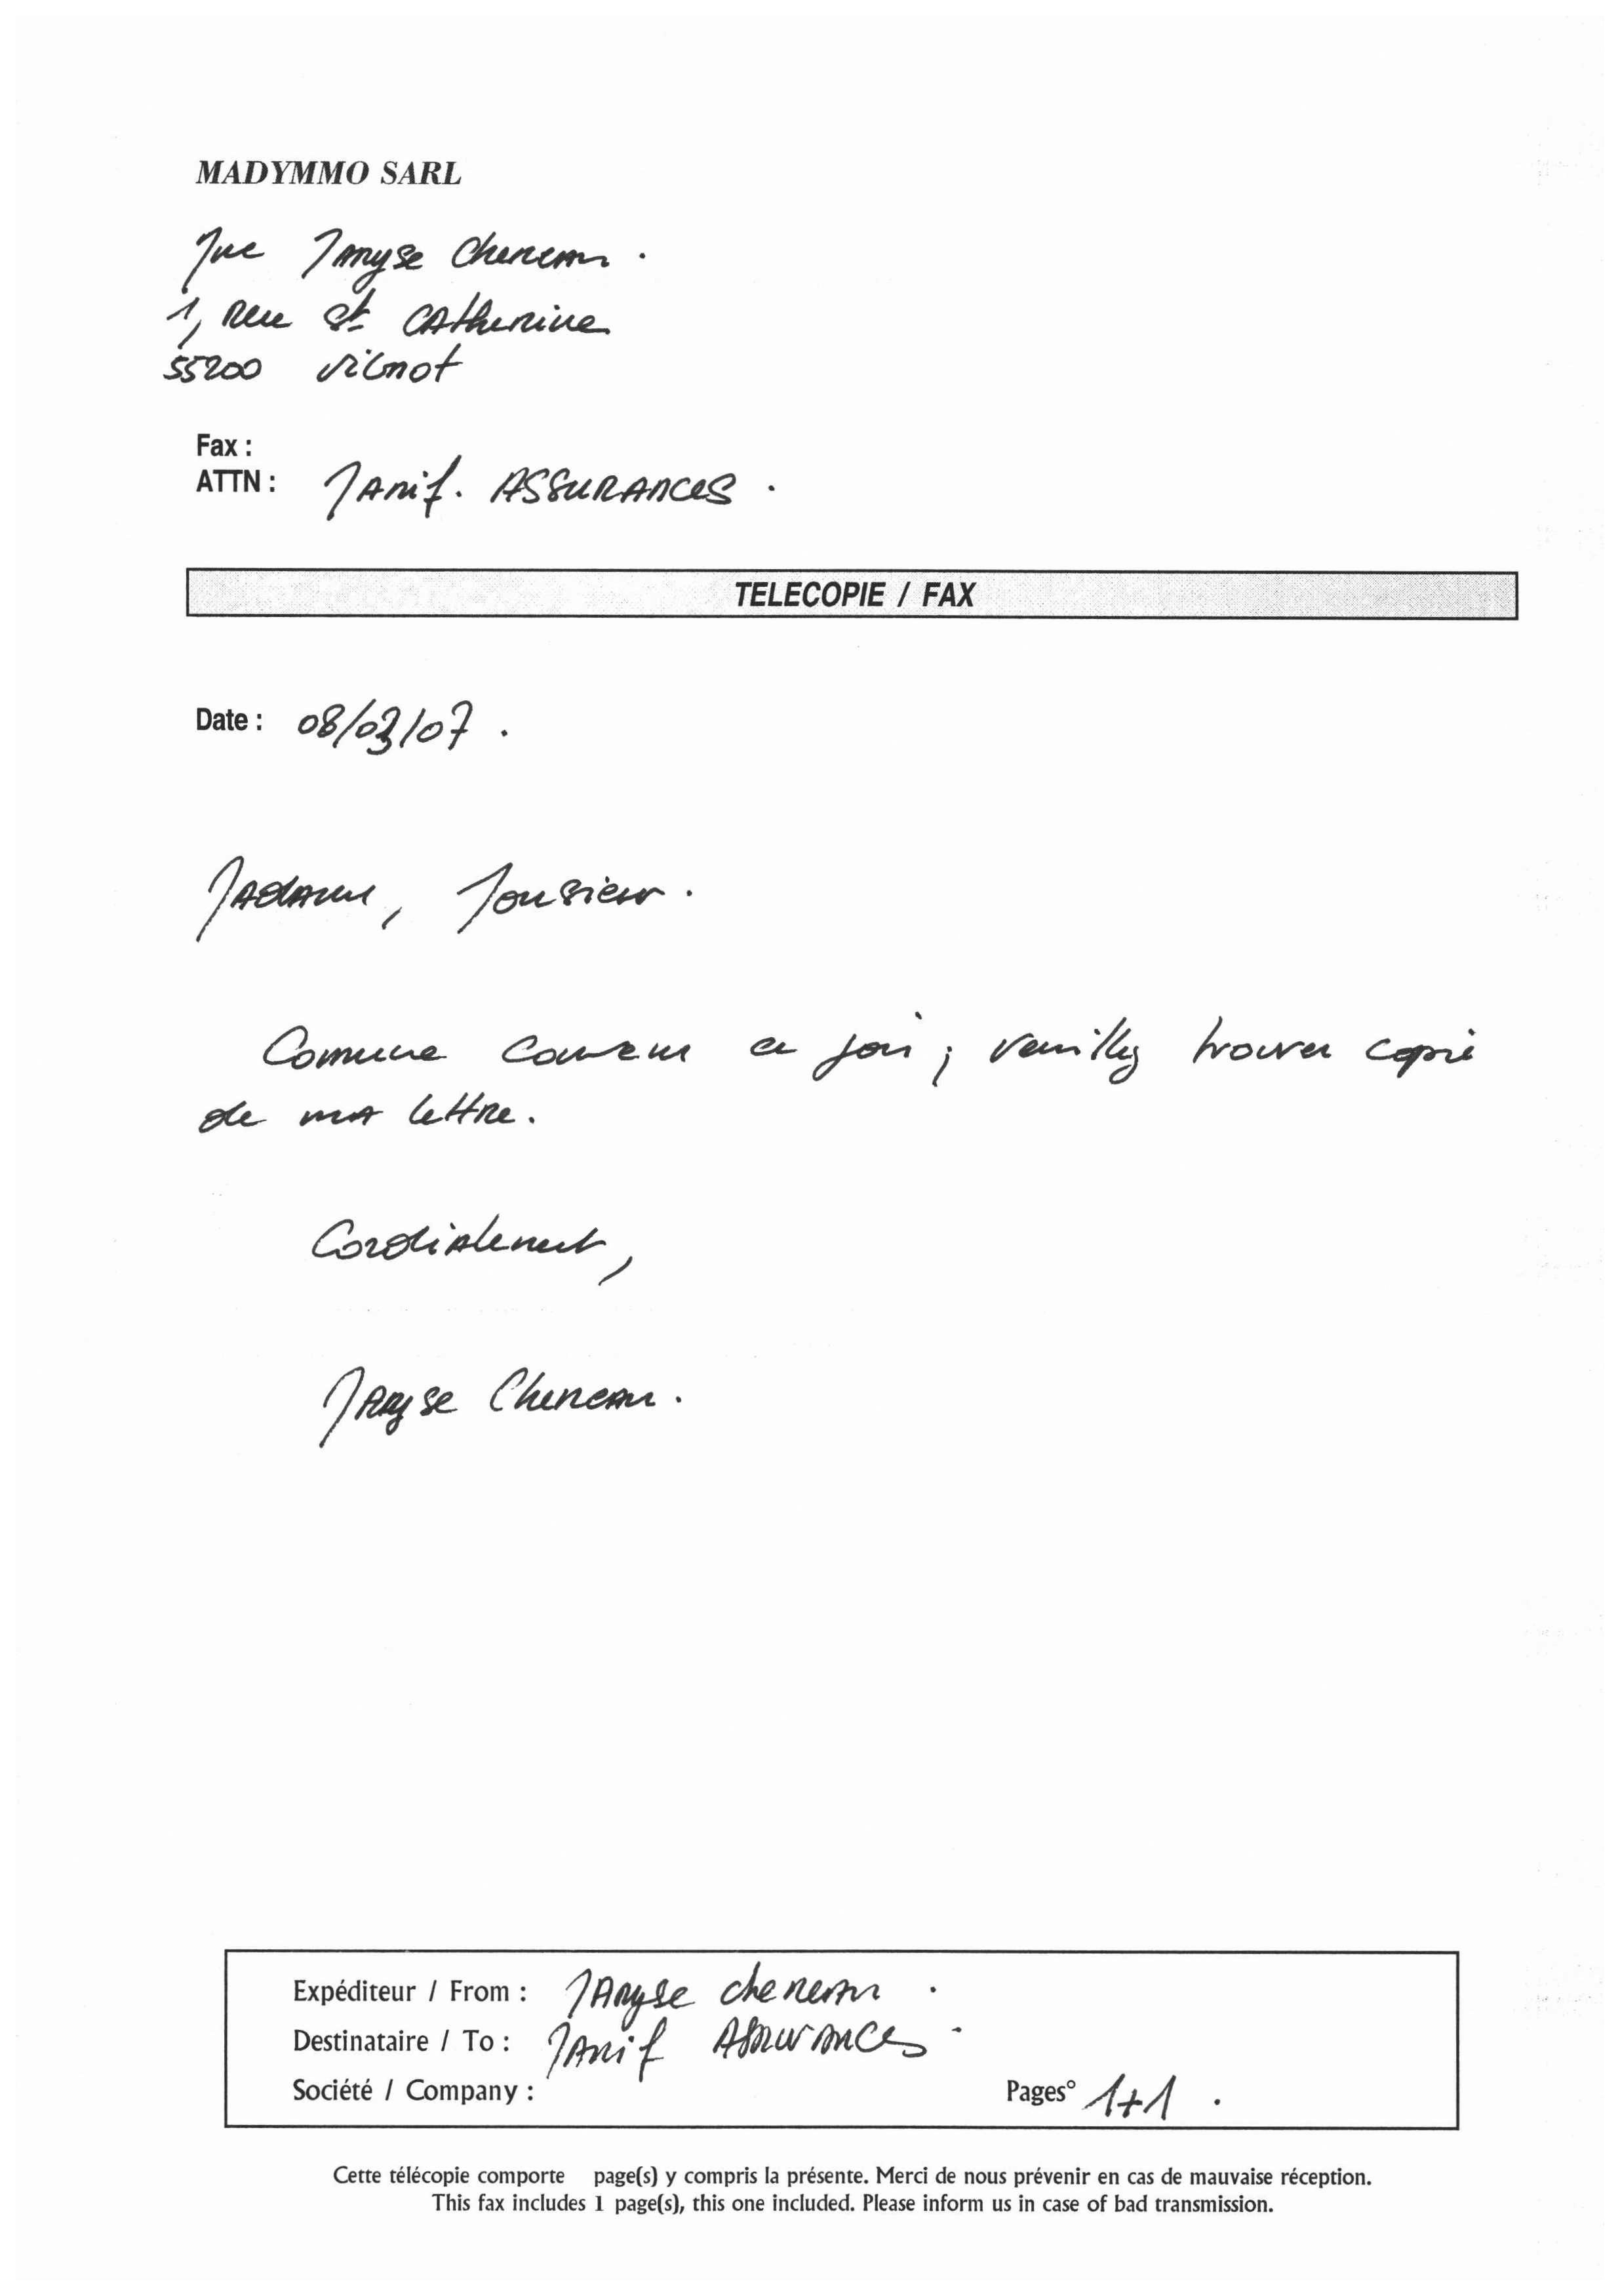 MADYMMO SARL
Mme Maryse Chereau.
1, Rue St Catherine
55200 Vignot
Fax :
ATTN : Manif. ASSURANCES.
TELECOPIE / FAX
Date : 08/03/07.
Madame, Monsieur.
Comme convenu ci joint, veuillez trouver copie
de ma lettre.
Cordialement,
Maryse Chereau.
Expéditeur / From : Maryse Chereau.
Destinataire / To : Manif Assurances.
Société / Company :
Pages° 1+1.
Cette télécopie comporte page(s) y compris la présente. Merci de nous prévenir en cas de mauvaise réception.
This fax includes 1 page(s), this one included. Please inform us in case of bad transmission.